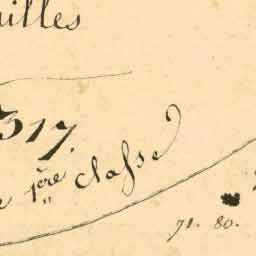 ailles
317.
e 1ère classe
71. 80.